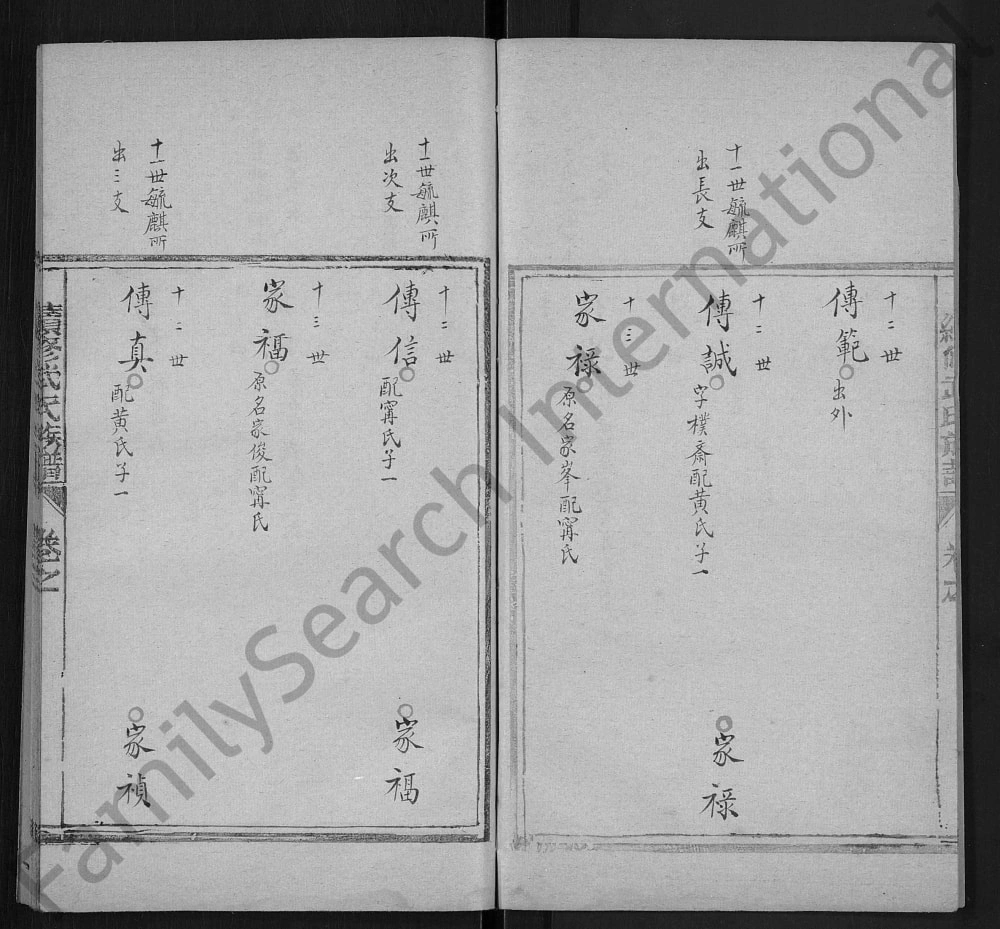 十二世
傳範
出外
十一世毓麒所
出長支
十二世
傳誠
字樸齋配黄氏子一
家禄
十三世
家禄
原名家峯配甯氏
十一世毓麒所
出次支
十二世
傳信
配甯氏子一
家福
十三世
家福
原名家俊配甯氏
十一世毓麒所
出三支
十二世
傳真
配黄氏子一
家禎
氏族譜
卷之
FamilySearch International